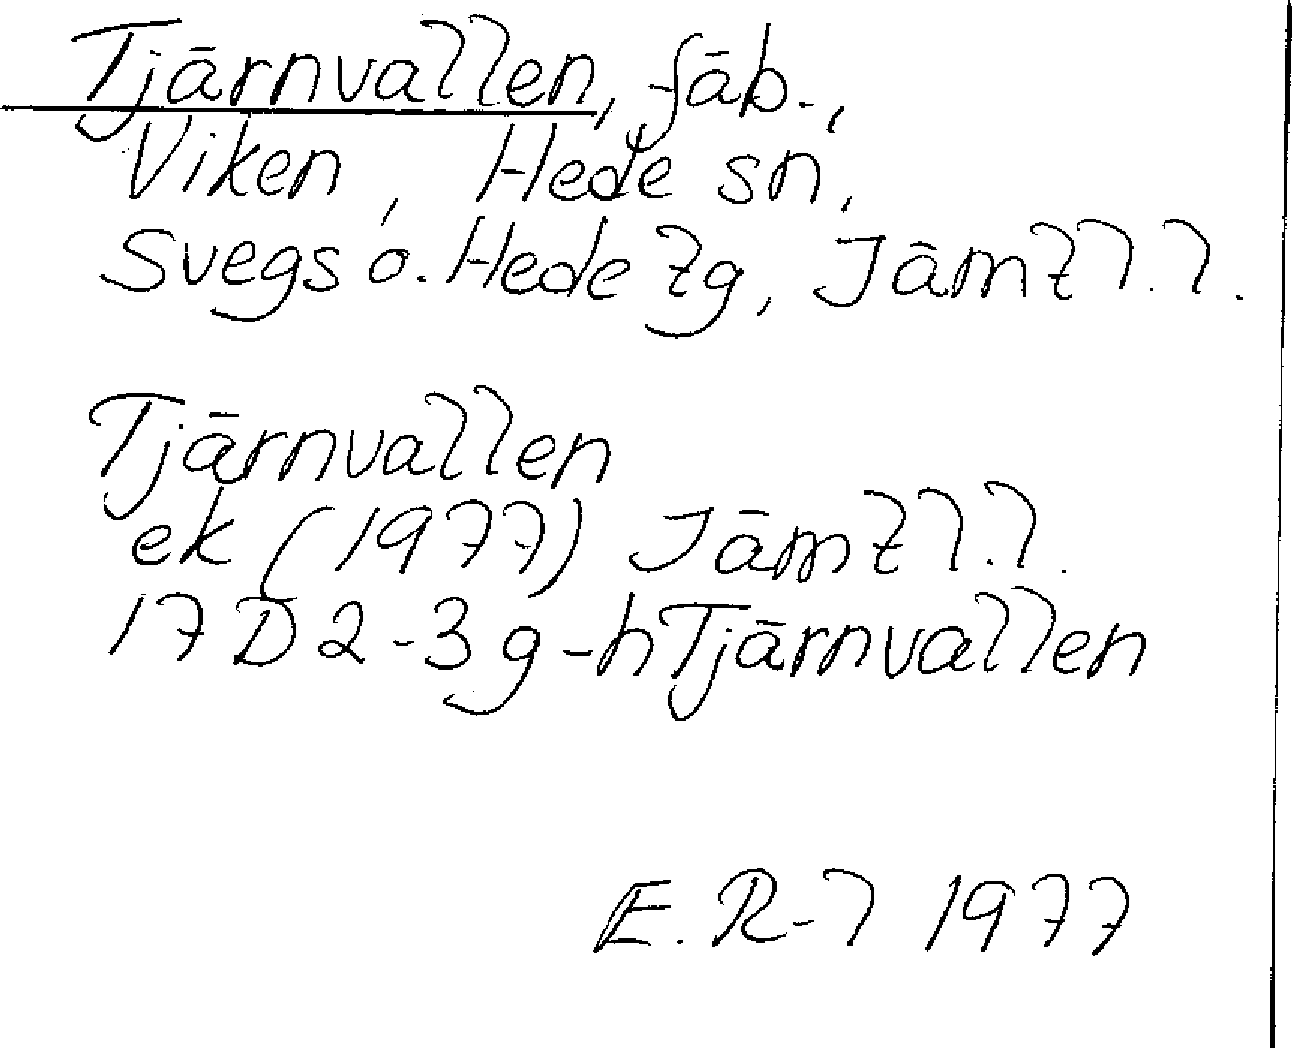 Tjärnvallen, fäb.,
Viken, Hede sn,
Svegs o. Hede tg, Jämtl. l.
Tjärnvallen
ek (1977) Jämtl. l.
17 D 2-3 g-h Tjärnvallen
E. R-l 1977